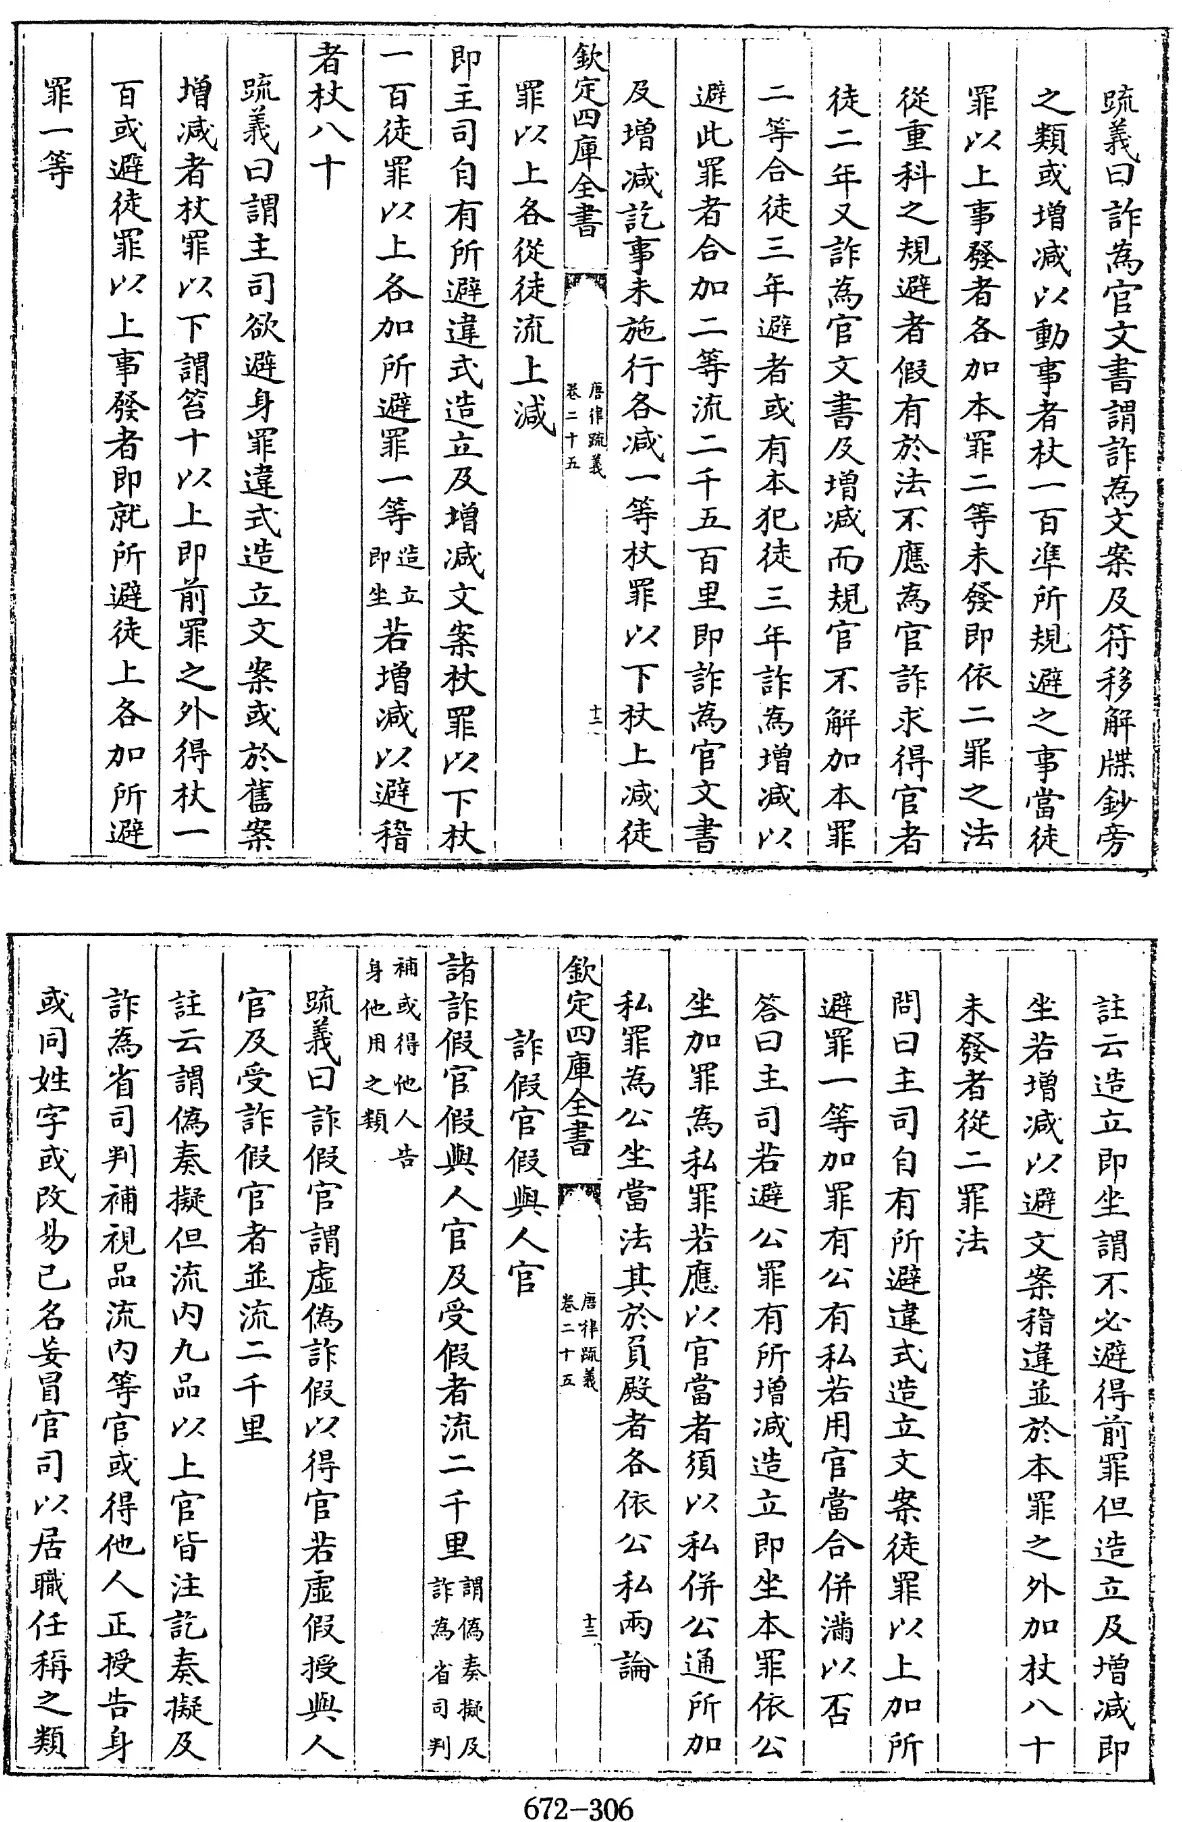 疏義曰詐為官文書謂詐為文案及符移解牒鈔旁
之類或增减以動事者杖一百凖所規避之事當徒
罪以上事發者各加本罪二等未發即依二罪之法
從重科之規避者假有於法不應為官詐求得官者
徒二年又詐為官文書及增减而規官不解加本罪
二等合徒三年避者或有本犯徒三年詐為增减以
避此罪者合加二等流二千五百里即詐為官文書
及增减訖事未施行各减一等杖罪以下杖上减徒
欽定四庫全書
唐律疏義
卷二十五
十二
罪以上各從徒流上减
即主司自有所避違式造立及增减文案杖罪以下杖
一百徒罪以上各加所避罪一等造立即坐若增减以避稽
者杖八十
疏義曰謂主司欲避身罪違式造立文案或於舊案
增减者杖罪以下謂笞十以上即前罪之外得杖一
百或避徒罪以上事發者即就所避徒上各加所避
罪一等
註云造立即坐謂不必避得前罪但造立及增减即
坐若增减以避文案稽違並於本罪之外加杖八十
未發者從二罪法
問曰主司自有所避違式造立文案徒罪以上加所
避罪一等加罪有公有私若用官當合併滿以否
答曰主司若避公罪有所增减造立即坐本罪依公
坐加罪為私罪若應以官當者須以私併公通所加
私罪為公坐當法其於負殿者各依公私兩論
欽定四庫全書
唐律疏義
卷二十五
十三
詐假官假與人官
諸詐假官假與人官及受假者流二千里謂偽奏擬及詐為省司判
補或得他人告身他用之類
疏義曰詐假官謂虛偽詐假以得官若虛假授與人
官及受詐假官者並流二千里
註云謂偽奏擬但流內九品以上官皆注訖奏擬及
詐為省司判補視品流內等官或得他人正授告身
或同姓字或改易己名妄冒官司以居職任稱之類
672-306